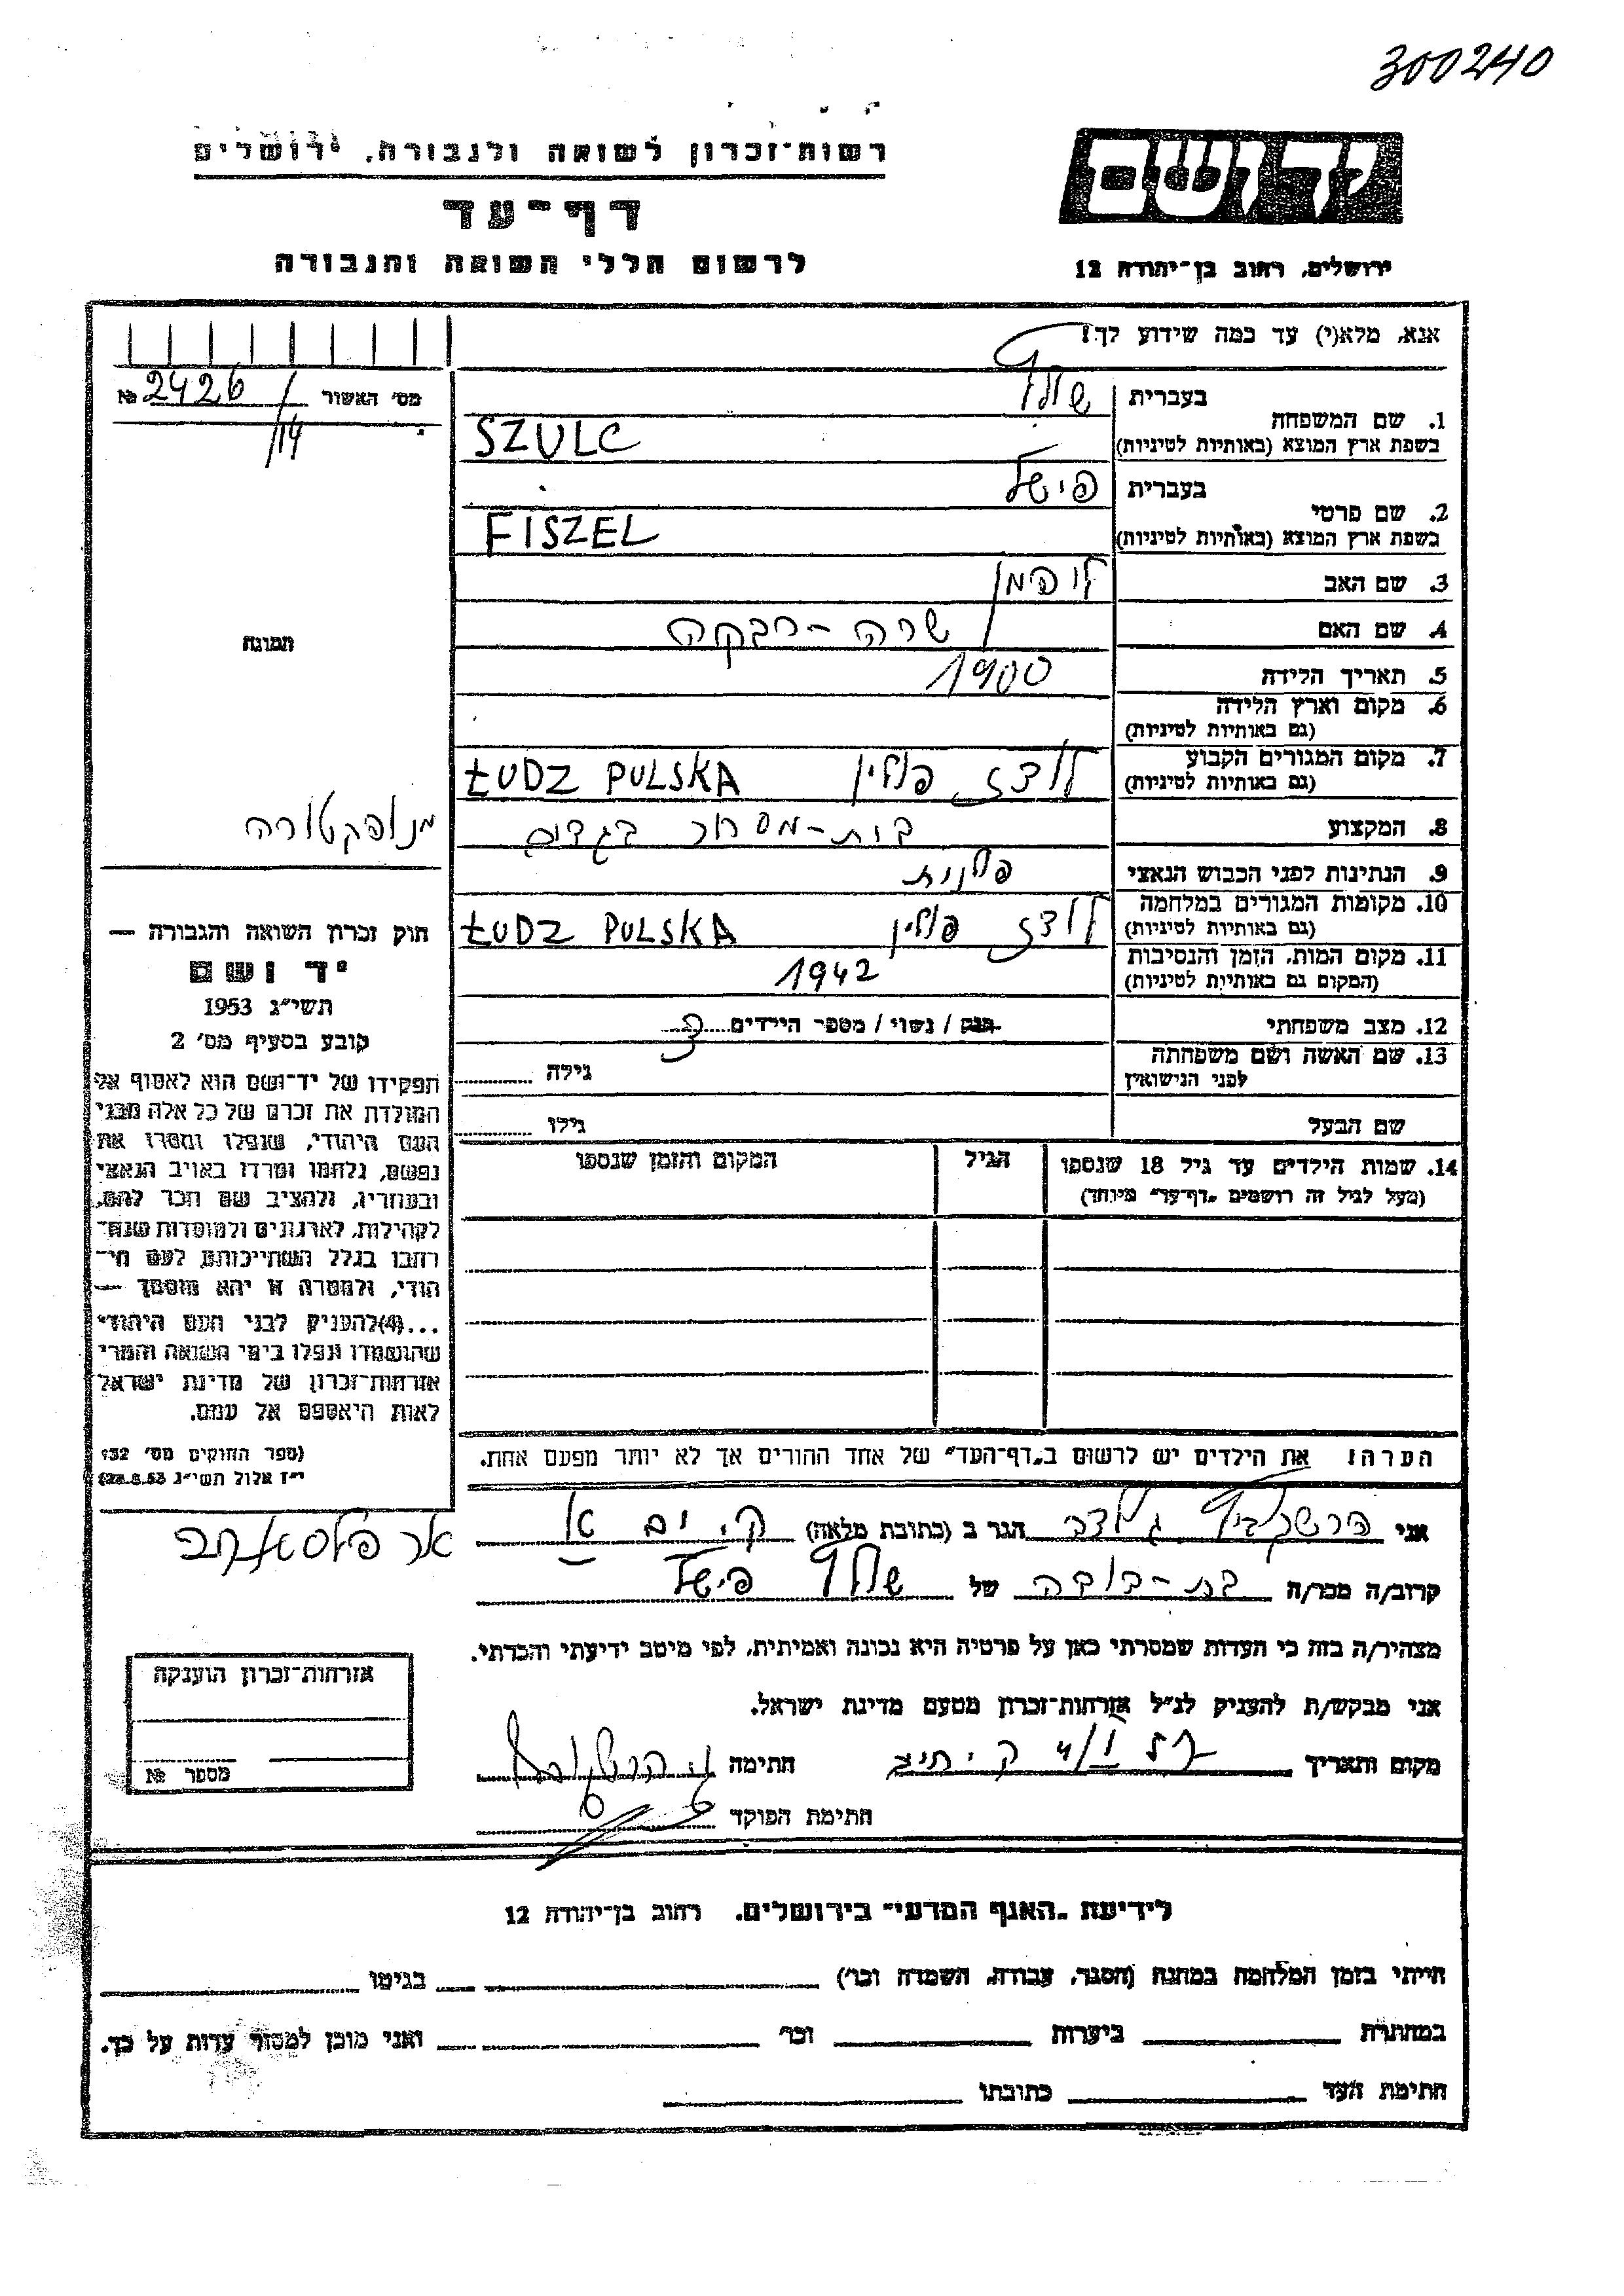 300240
רשות־זכרון לשואה ולגבורה, ירושלים
יד ושם
דף־עד
לרשום חללי השואה והגבורה
ירושלים, רחוב בן־יהודה 12
אנא, מלא(י) עד כמה שידוע לך!
מס' האשור № 2426/14
1. שם המשפחה בעברית שולץ
בשפת ארץ המוצא (באותיות לטיניות) SZULC
2. שם פרטי בעברית פישל
בשפת ארץ המוצא (באותיות לטיניות) FISZEL
3. שם האב ליפמן
4. שם האם שרה-רבקה
תמונה
5. תאריך הלידה 1900
6. מקום וארץ הלידה
(גם באותיות לטיניות)
7. מקום המגורים הקבוע לודז' פולין ŁUDZ PULSKA
(גם באותיות לטיניות)
8. המקצוע בית-מסחר בגדים מנופקטורה
9. הנתינות לפני הכבוש הנאצי פולנית
10. מקומות המגורים במלחמה לודז' פולין ŁUDZ PULSKA
(גם באותיות לטיניות)
11. מקום המות, הזמן והנסיבות 1942
(המקום גם באותיות לטיניות)
12. מצב משפחתי רווק / נשוי / מספר הילדים 3
13. שם האשה ושם משפחתה
לפני הנישואין גילה
שם הבעל גילו
14. שמות הילדים עד גיל 18 שנספו הגיל המקום והזמן שנספו
(מעל לגיל זה רושמים „דף־עד" מיוחד)
חוק זכרון השואה והגבורה —
יד ושם
תשי"ג 1953
קובע בסעיף מס' 2
תפקידו של יד־ושם הוא לאסוף אל
המולדת את זכרם של כל אלה מבני
העם היהודי, שנפלו ומסרו את
נפשם, נלחמו ומרדו באויב הנאצי
ובעוזריו, ולהציב שם וזכר להם,
לקהילות, לארגונים ולמוסדות שנח־
רבו בגלל השתייכותם לעם הי־
הודי, ולמטרה זו יהא מוסמך —
...(4) להעניק לבני העם היהודי
שהושמדו ונפלו בימי השואה והמרי
אזרחות־זכרון של מדינת ישראל
לאות היאספם אל עמם.
(ספר החוקים מס' 132
י"ז אלול תשי"ג 28.8.53)
הערה! את הילדים יש לרשום ב„דף־העד" של אחד ההורים אך לא יותר מפעם אחת.
אני הרשקוביץ הגר ב (כתובת מלאה) ק. ים א'
קרוב/ה מכר/ה בת-דודה של שולץ פישל
מצהיר/ה בזה כי העדות שמסרתי כאן על פרטיה היא נכונה ואמיתית, לפי מיטב ידיעתי והכרתי.
אני מבקש/ת להעניק לנ"ל אזרחות־זכרון מטעם מדינת ישראל.
מקום ותאריך חתימה
חתימת הפוקד
אזרחות־זכרון הוענקה
מספר №
לידיעת „האגף המדעי" בירושלים. רחוב בן־יהודה 12
הייתי בזמן המלחמה במחנה (הסגר, עבודה, השמדה וכו') בגיטו
במחתרת ביערות וכו' ואני מוכן למסור עדות על כך.
חתימת העד כתובתו